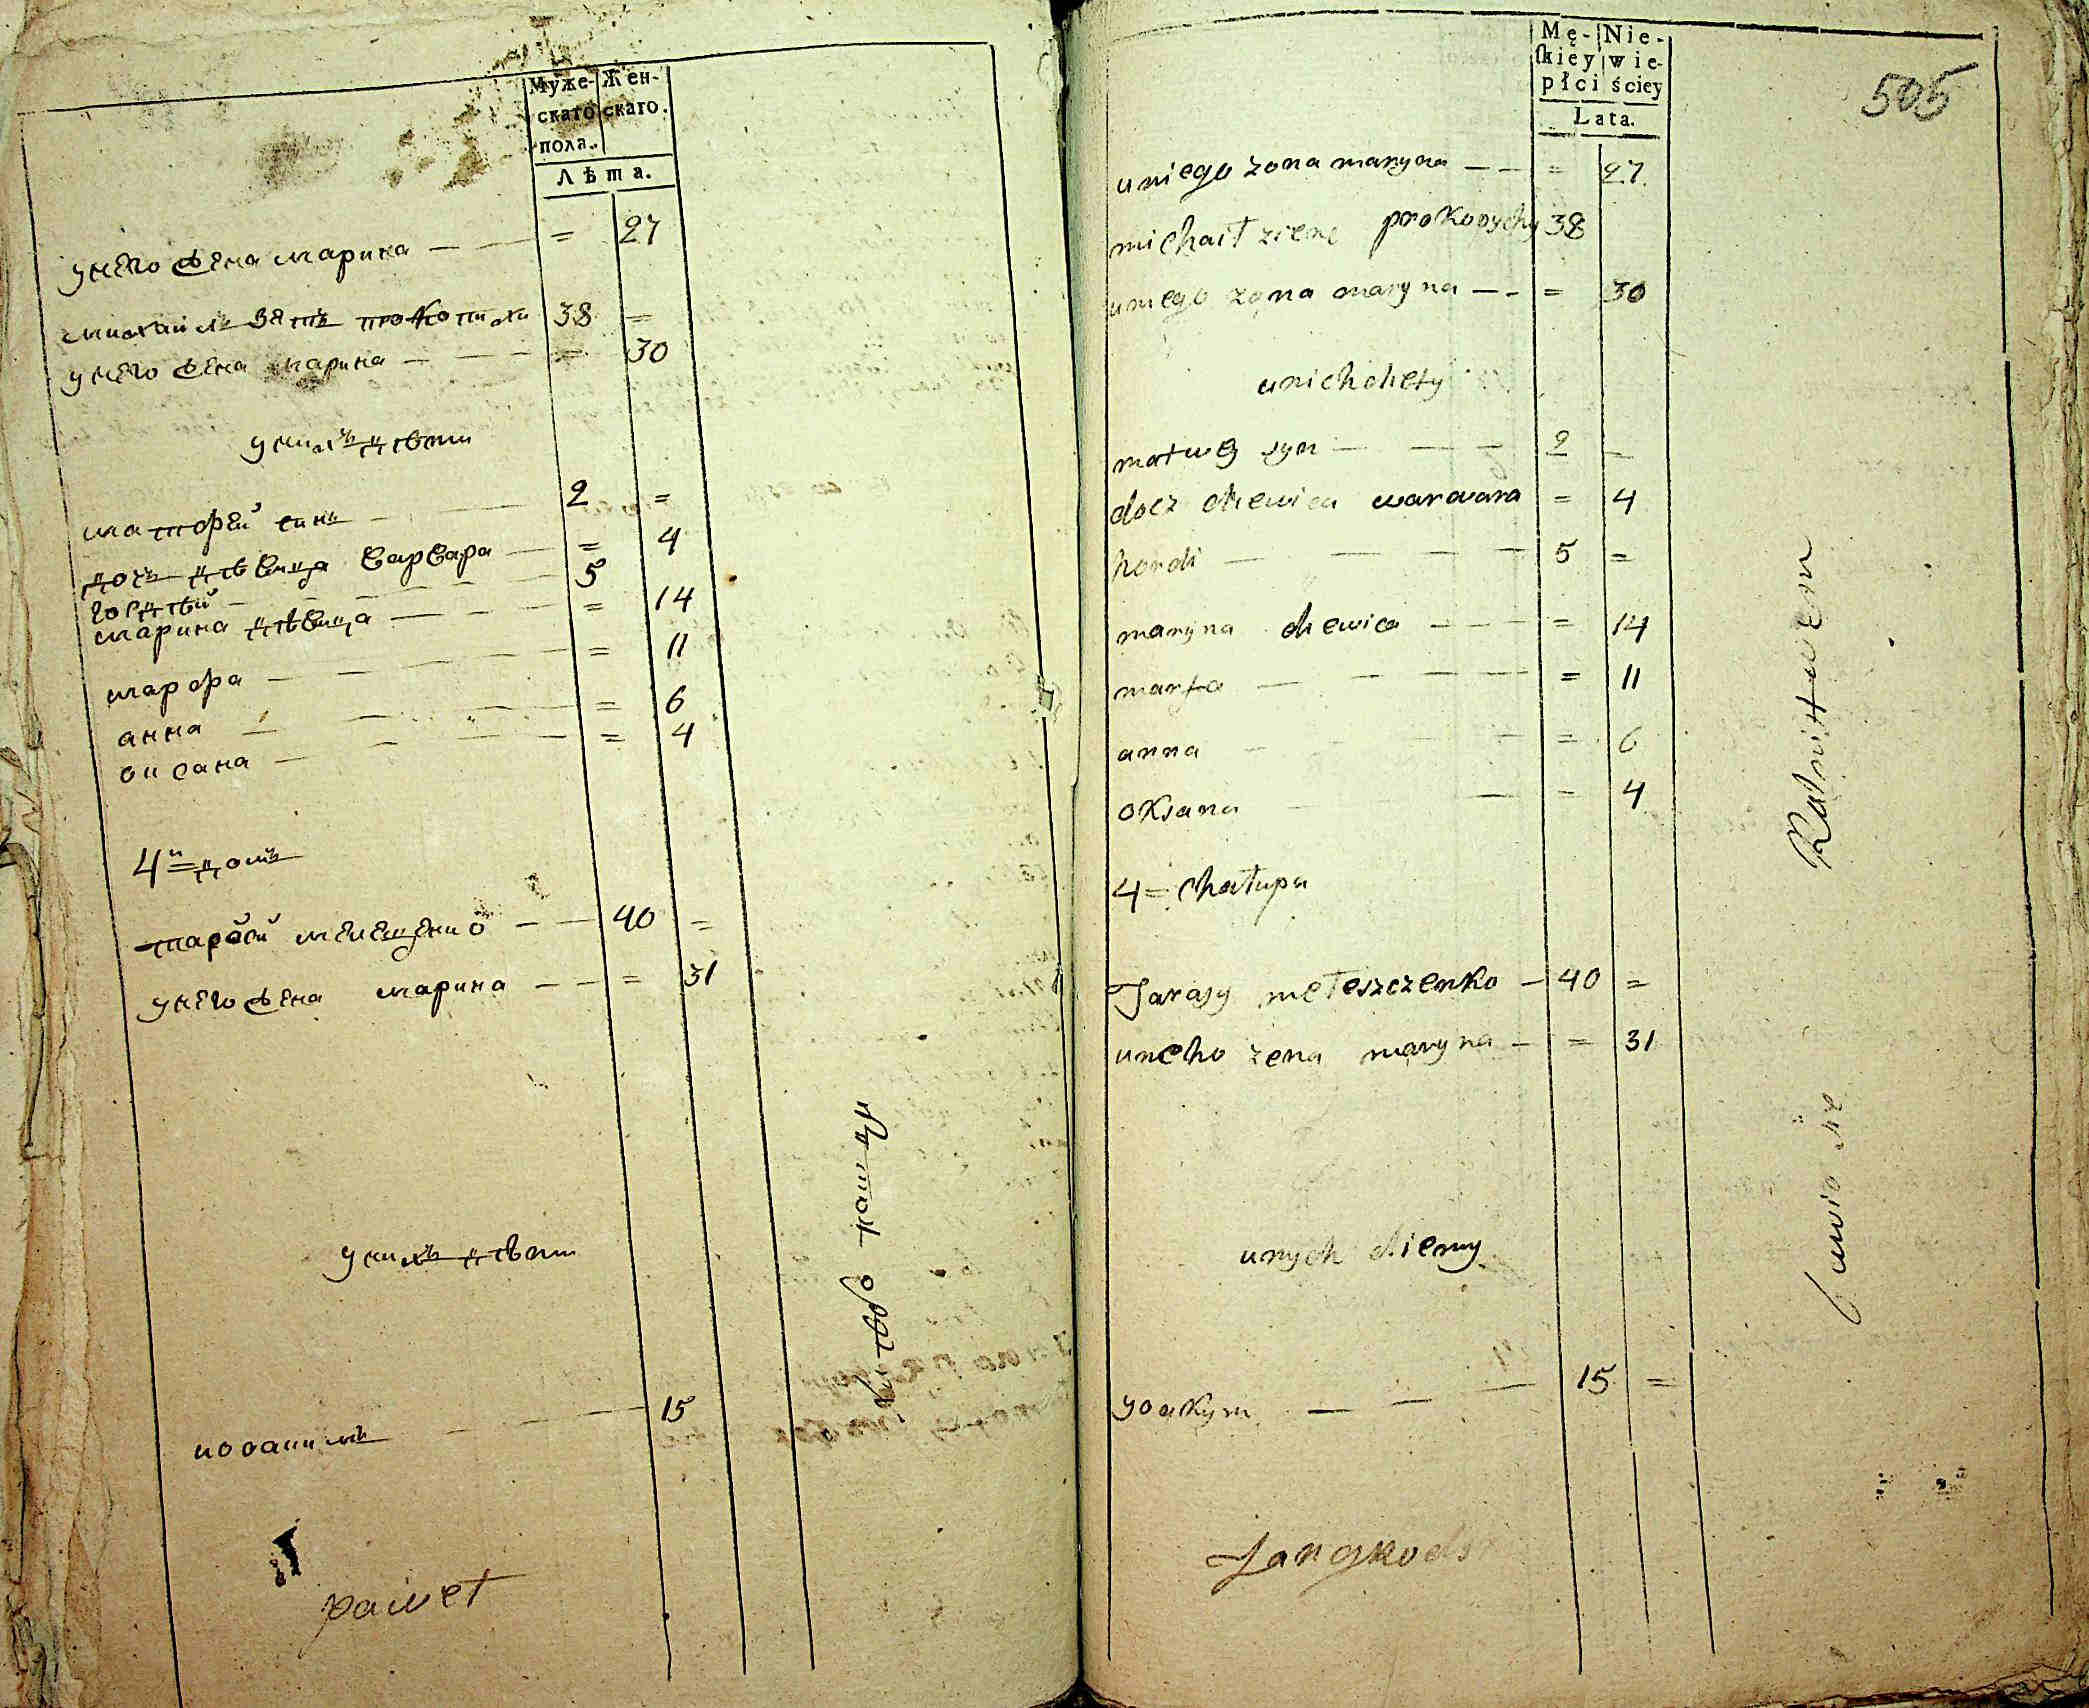 Муже-
скаго
пола.
Жен-
скаго.
Лѣта.
унего жена марина — — = 27
михаилъ зять прокопихи 38 =
унего жена марина — — — = 30
унихъ дѣти
матфей синъ — — 2 =
дочъ дѣвица варвара — = 4
гордѣй — — — 5
марина дѣвица — — — = 14
марфа — — — = 11
анна — — — = 6
оксана — — — = 4
4й = домъ
тарасий мелещенко — — 40 =
унего жена марина — — = 31
унихъ дѣти
иоакимъ — — — 15
paweł
505
Mę-
skiey
płci
Nie-
wie-
ściey
Lata.
uniego zona maryna — — = 27
michaił zienc prokopychy 38
uniego zona maryna — — = 30
unich diety
matwey syn — — — 2 —
docz diewica warwara = 4
hordi — — — — 5 =
maryna diewica — — — = 14
marfa — — — — = 11
anna — — — = 6
oksana — — — = 4
4 = chałupa
Tarasy mełeszczenko — 40 =
uneho zena maryna — = 31
unych diemy
yoakym — — — 15 =